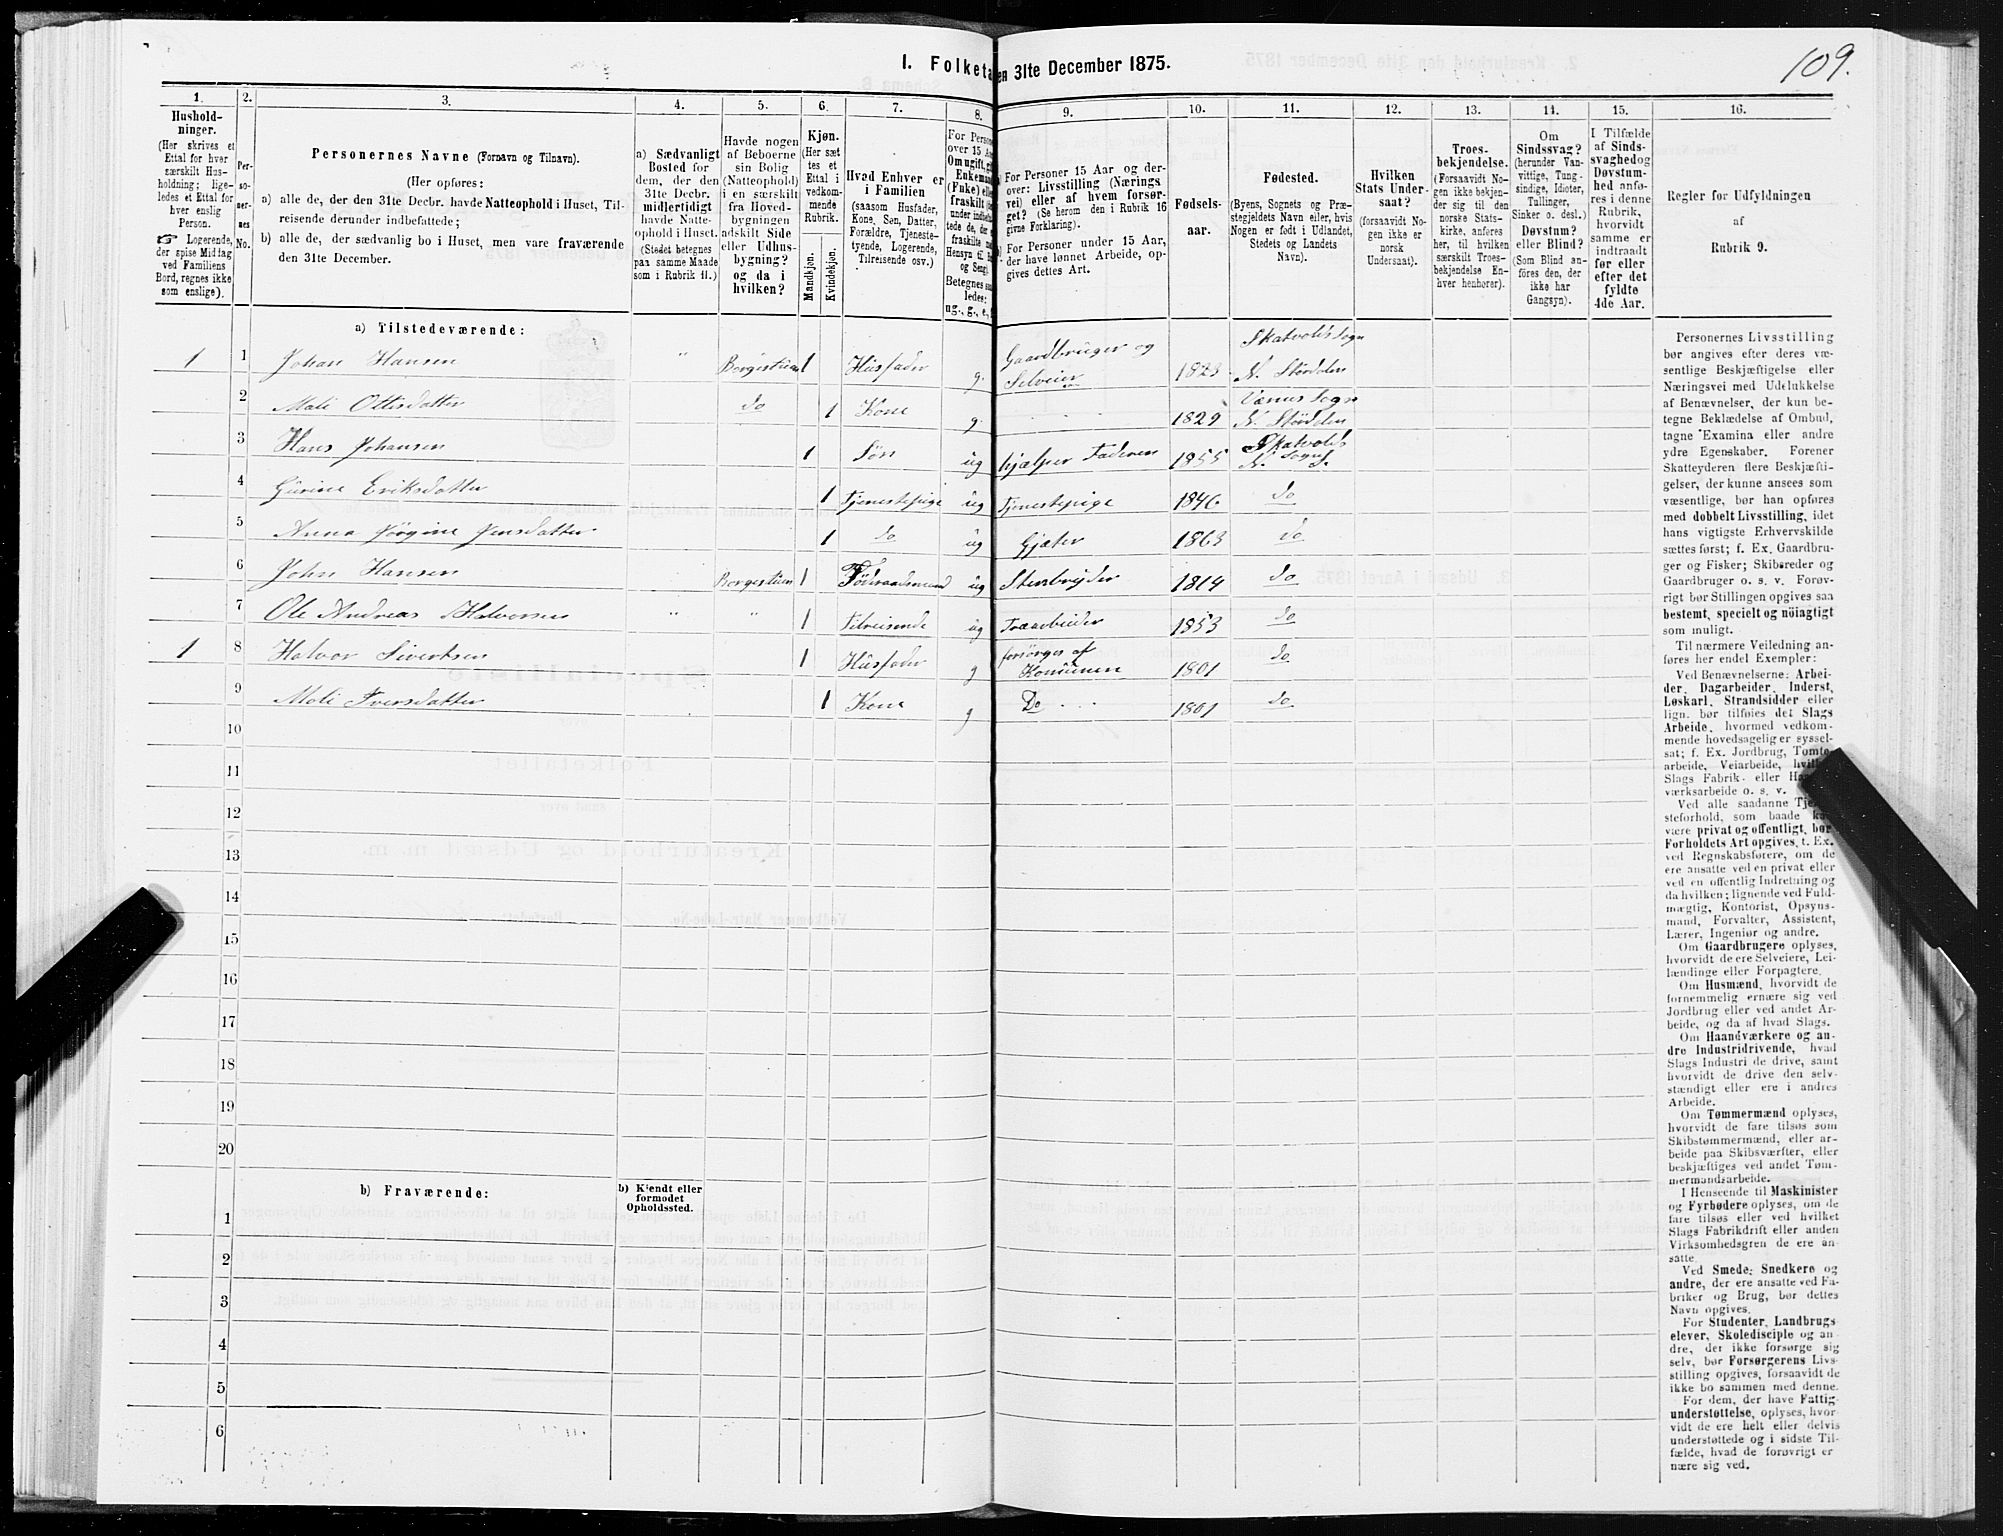 109.
I. Folketa en 31te December 1875.
1.
Hushold-
ninger.
(Her skrives et
Ettal for hver
særskilt Hus-
holdning; lige-
ledes et Ettal for
hver enslig
Person.
☞ Logerende,
der spise Middag
ved Familiens
Bord, regnes ikke
som enslige).
2.
Per-
so-
ner-
nes
No.
3.
Personernes Navne (Fornavn og Tilnavn).
(Her opføres:
a) alle de, der den 31te Decbr. havde Natteophold i Huset, Til-
reisende derunder indbefattede;
b) alle de, der sædvanlig bo i Huset, men vare fraværende
den 31te December.
4.
a) Sædvanligt
Bosted for
dem, der den
31te Decbr.
midlertidigt
havde Natte-
ophold i Huset.
(Stedet betegnes
paa samme Maade
som i Rubrik 11.)
5.
Havde nogen
af Beboerne
sin Bolig
(Natteophold)
i en særskilt
fra Hoved-
bygningen
adskilt Side
eller Udhus-
bygning?
og da i
hvilken?
6.
Kjøn.
(Her sæt-
tes et
Ettal i
vedkom-
mende
Rubrik.
Mandkjøn.
Kvindekjøn.
7.
Hvad Enhver er
i Familien
(saasom Husfader,
Kone, Søn, Datter,
Forældre, Tjeneste-
tyende, Logerende,
Tilreisende osv.)
8.
For Person
over 15 A
Om ugift, gi
Enkeman
(Fuke) elle
fraskilt
under indbe
tede de,
fraskilte
Hensyn til
og Seng
Betegnes saa
ledes:
ug., g., e.,
9.
a) For Personer 15 Aar og der-
over: Livsstilling (Nærings
vei) eller af hvem forsør-
get? (Se herom den i Rubrik 16
givne Forklaring).
b) For Personer under 15 Aar,
der have lønnet Arbeide, op-
gives dettes Art.
10.
Fødsels-
aar.
11.
Fødested.
(Byens, Sognets og Præ-
stegjeldets Navn eller, hvis
Nogen er født i Udlandet,
Stedets og Landets
Navn).
12.
Hvilken
Stats Under-
saat?
(forsaavidt No-
gen ikke er
norsk
Undersaat).
13.
Troes-
bekjendelse.
(Forsaavidt No-
gen ikke bekjen-
der sig til den
norske Stats-
kirke, anføres
her, til hvilken
særskilt Troes-
bekjendelse En-
hver henhører).
14.
Om
Sindssvag?
(herunder Van-
vittige, Tung-
sindige, Idioter,
Tullinger,
Sinker o. desl.)
Døvstum?
eller Blind?
(Som Blind an-
føres den, der
ikke har
Gangsyn).
15.
I Tilfælde
af Sinds-
svaghedog
Døvstum-
hed anfø-
res i denne
Rubrik,
hvorvidt
samme er
indtraadt
før eller
efter det
fyldte
4de Aar.
16.
Regler for Udfyldningen
af
Rubrik 9.
a) Tilstedeværende:
1 1 Johan Hansen " Borgestuen 1 Husfader g. Gaardbruger og Selveier 1823 Skatvolds Sogn N. Stördalen
2 Mali Ottisdatter do 1 Kone g. " " 1829 Værnes Sogn N. Stördalen
3 Hans Johansen 1 Søn ug hjælper Faderen 1855 Skatvolds Sogn N. S.
4 Gurine Eriksdatter 1 Tjenestepige ug Tjenestepige 1846 do
5 Anna Jörgine Jensdatter 1 do ug Gjæter 1863 do
6 John Hansen Borgestuen 1 Föderaadsmand ug Stenbryder 1814 do
7 Ole Andreas Halvorsen " " 1 Tilreisende ug Træarbeider 1853 do
1 8 Halvor Sivertsen 1 Husfader g forsørges af Komunen 1801 do
9 Mali Iversdatter 1 Kone g Do 1801 do
10
11
12
13
14
15
16
17
18
19
20
b) Fraværende:
b) Kjendt eller
formodet
Opholdssted.
1
2
3
4
5
6
Personernes Livsstilling
bør angives efter deres væ-
sentlige Beskjæftigelse eller
Næringsvei med Udelukkelse
af Benævnelser, der kun be-
tegne Beklædelse af Ombud,
tagne Examina eller andre
ydre Egenskaber. Forener
Skatteyderen flere Beskjæfti-
gelser, der kunne ansees som
væsentlige, bør han opføres
med dobbelt Livsstilling, idet
hans vigtigste Erhvervskilde
sættes først; f. Ex. Gaardbru-
ger og Fisker; Skibsreder og
Gaardbruger o. s. v. Forøv-
rigt bør Stillingen opgives saa
bestemt, specielt og nöiagtigt
som muligt.
Til nærmere Veiledning an-
føres her endel Exempler:
Ved Benævnelserne: Arbei-
der, Dagarbeider, Inderst,
Løskarl, Strandsidder eller
lign. bør tilføies det Slags
Arbeide, hvormed vedkom-
mende hovedsagelig er syssel-
sat; f. Ex. Jordbrug, Tomte-
arbeide, Veiarbeide, hvilket
Slags Fabrik- eller Ha
værksarbeide o. s. v.
Ved alle saadanne Tje
steforhold, som baade k
være privat og offentligt, bør
Forholdets Art opgives, t. Ex.
ved Regnskabsførere, om de
ere ansatte ved en privat eller
ved en offentlig Indretning og
da hvilken; lignende ved Fuld-
mægtig, Kontorist, Opsyns-
mand, Forvalter, Assistent,
Lærer, Ingeniør og andre.
Om Gaardbrugere oplyses,
hvorvidt de ere Selveiere, Lei-
lændinge eller Forpagtere.
Om Husmænd, hvorvidt de
fornemmelig ernære sig ved
Jordbrug eller ved andet Ar-
beide, og da af hvad Slags.
Om Haandværkere og an-
dre Industridrivende, hvad
Slags Industri de drive, samt
hvorvidt de drive den selv-
stændigt eller ere i andres
Arbeide.
Om Tømmermænd oplyses,
hvorvidt de fare tilsøs som
Skibstømmermænd, eller ar-
beide paa Skibsværfter, eller
beskjæftiges ved andet Tøm-
mermandsarbeide.
I Henseende til Maskinister
og Fyrbødere oplyses, om de
fare tilsøs eller ved hvilket
Slags Fabrikdrift eller anden
Virksomhedsgren de ere an-
satte.
Ved Smede, Snedkere og
andre, der ere ansatte ved Fa-
briker og Brug, bør dettes
Navn opgives.
For Studenter, Landbrugs-
elever, Skoledisciple og an-
dre, der ikke forsørge sig
selv, bør Forsørgerens Livs-
stilling opgives, forsaavidt de
ikke bo sammen med denne.
For dem, der have Fattig-
understøttelse, oplyses, hvor-
vidt de ere helt eller delvis
understøttede og i sidste Til-
fælde, hvad de forøvrigt er
nære sig ved.